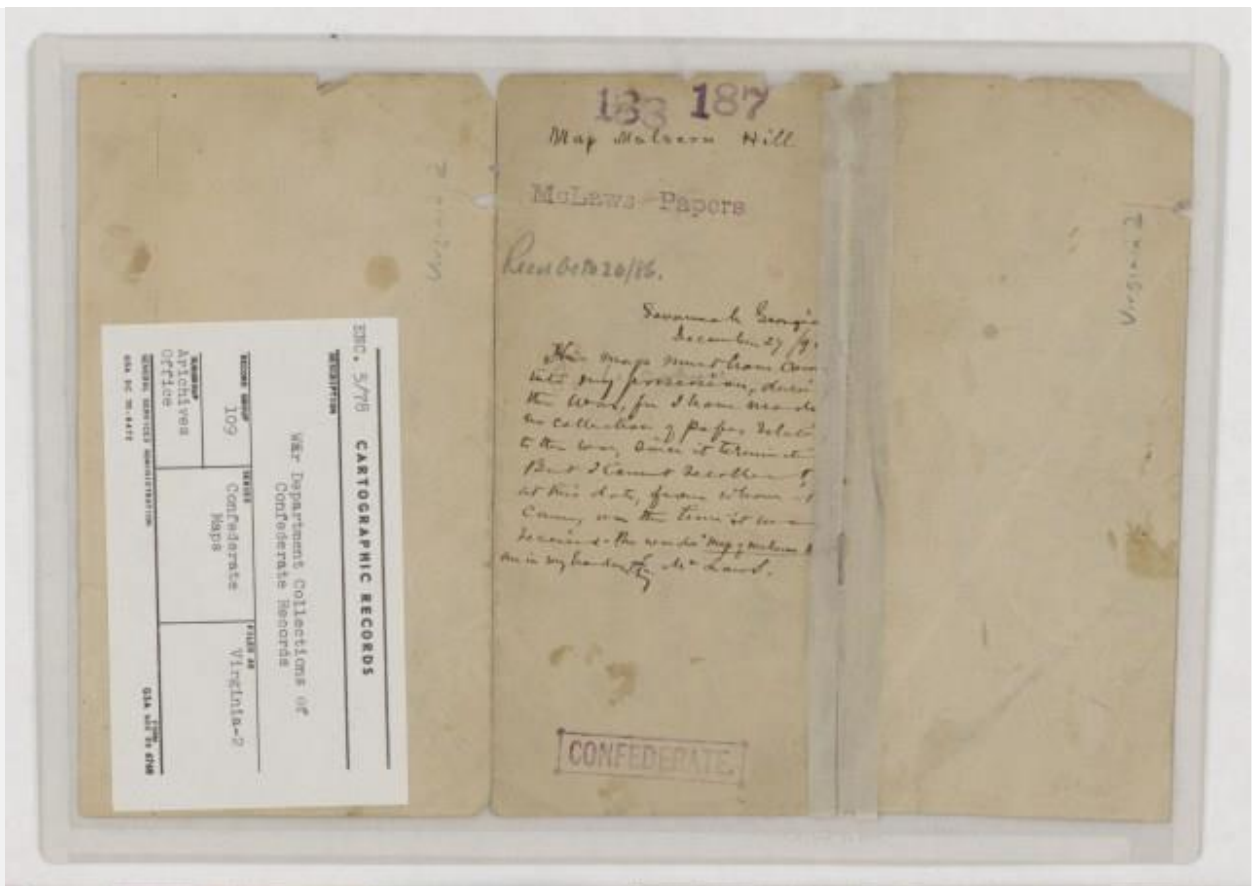 183 187
Map Malvern Hill
McLaws Papers
Savannah Georgia
December 27 /9
This map must have come
into my possession, durin
the War, for I have made
no collection of papers relati
to the war, since it terminat
But I cannot recollect
at this date, from whom
came, nor the time it was
received - the words "Map of Malvern H
are in my handwriting L McLaws.
CONFEDERATE.
Virginia 2
Virginia 2
ENC. 5/78 CARTOGRAPHIC RECORDS
DESCRIPTION
War Department Collections of
Confederate Records
RECORD GROUP
109
SERIES
Confederate
Maps
FILED AS
Virginia-2
SUBGROUP
Arichives
Office
GENERAL SERVICES ADMINISTRATION
GSA DC 70-6472